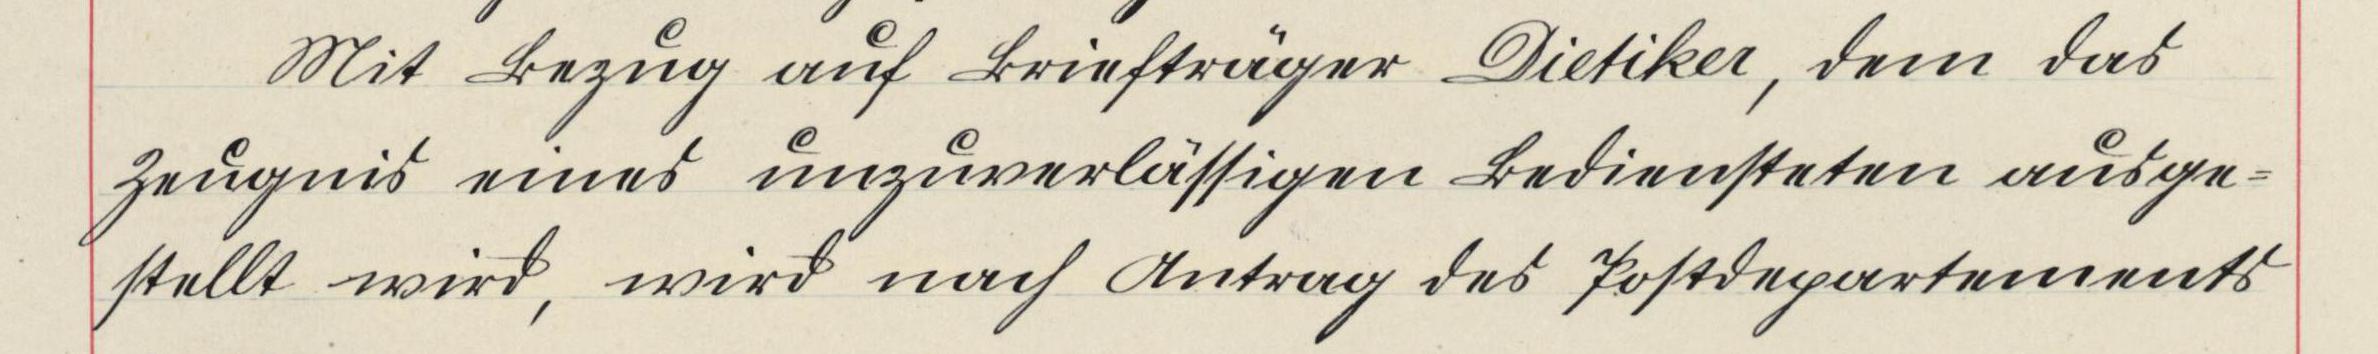 Mit Bezug auf Briefträger Dietiker, dem das
Zeugnis eines unzuverlässigen Bediensteten ausge=
stellt wird, wird nach Antrag des Postdepartements